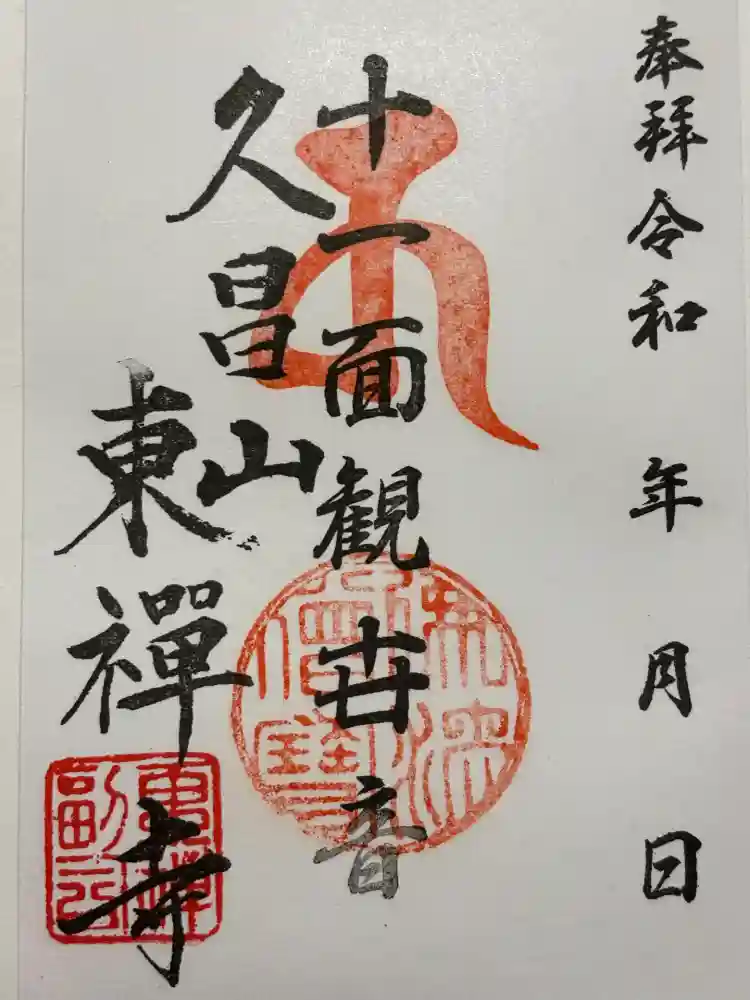 奉拝 令和 年 月 日
十一面観世音
久昌山
東禅寺